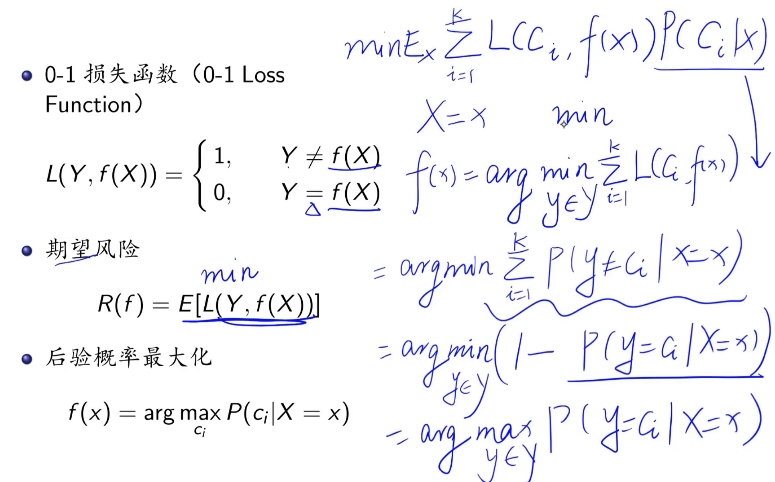 • 0-1 损失函数（0-1 Loss
Function）
L(Y, f(X)) = { 1, Y ≠ f(X)
0, Y = f(X)
Δ
• 期望风险
min
R(f) = E[L(Y, f(X))]
• 后验概率最大化
f(x) = arg max_{c_i} P(c_i|X = x)
min E_x ∑_{i=1}^{K} L(C_i, f(x)) P(C_i|X)
X=x min
f(x) = arg min_{y∈Y} ∑_{i=1}^{K} L(C_i, f(x))
= argmin ∑_{i=1}^{K} P(y≠C_i | X=x)
= arg min_{y∈Y} (1 − P(y=C_i | X=x))
= arg max_{y∈Y} P(y=C_i | X=x)